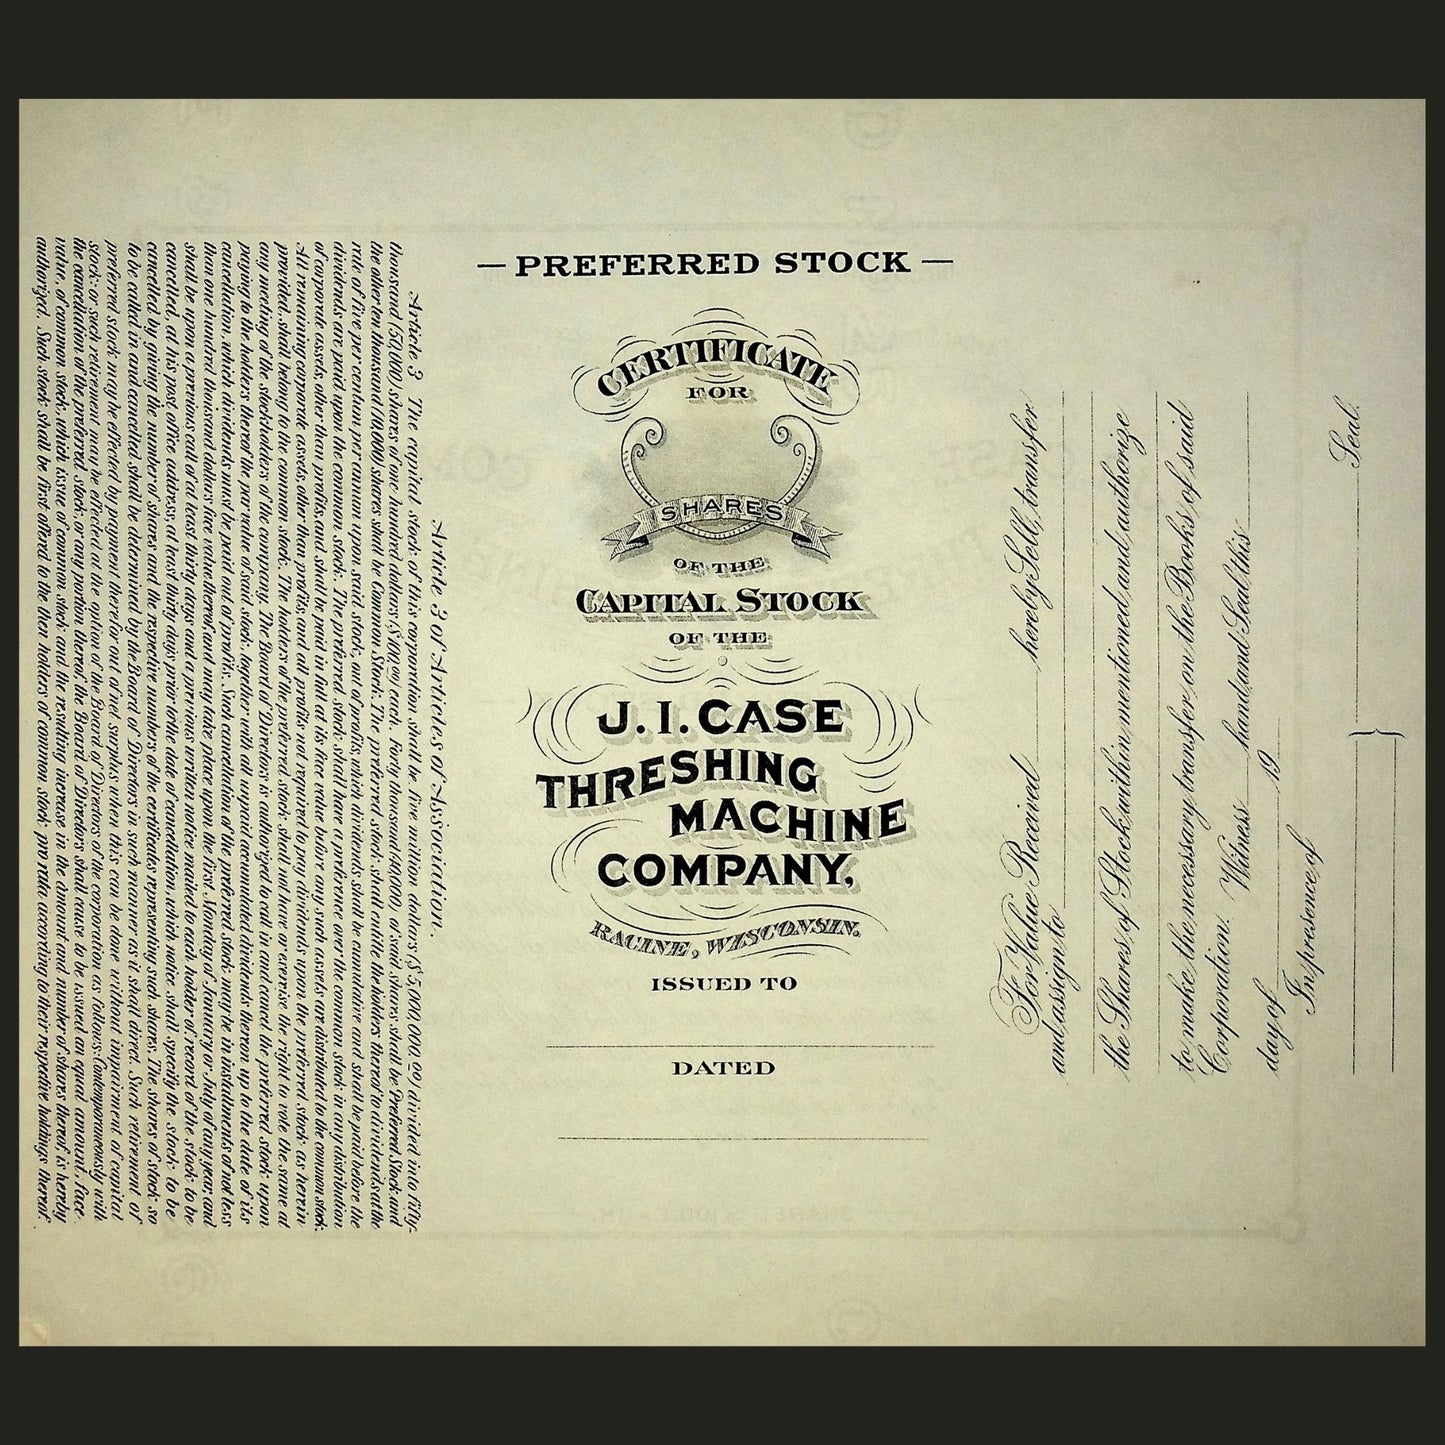 Article 3 of Articles of Association.
Article 3 The capital stock of this corporation shall be five million dollars ($5,000,000.00) divided into fifty-
thousand (50,000) shares of one hundred dollars ($100.00) each. Forty thousand (40,000) of said shares shall be Preferred Stock and
the other ten thousand (10,000) shares shall be Common Stock. The preferred stock shall entitle the holders thereof to dividends at the
rate of five per centum per annum upon said stock, out of profits, which dividends shall be cumulative and shall be paid before the
dividends are paid upon the common stock. The preferred stock shall have a preference over the common stock in any distribution
of corporate assets, other than profits, and shall be paid in full at its face value before any such assets are distributed to the common stock.
All remaining corporate assets, other than profits, and all profits not required to pay dividends upon the preferred stock as herein
provided, shall belong to the common stock. The holders of the preferred stock shall not have or exercise the right to vote the same at
any meeting of the stockholders of the company. The Board of Directors is authorized to call in and cancel the preferred stock upon
paying to the holders thereof the par value of said stock, together with all unpaid accumulated dividends thereon up to the date of its
cancellation, which dividends must be paid out of profits. Such cancellation of the preferred stock may be in installments of not less
than one hundred thousand dollars face value thereof and may take place upon the first Monday of January or July of any year; and
shall be upon a previous call of at least thirty days and a previous written notice mailed to each holder of record of the stock to be
cancelled, at his post office address, at least thirty days prior to the date of cancellation, which notice shall specify the stock to be
cancelled by giving the number of shares and the respective numbers of the certificates representing such shares. The shares of stock so
to be called in and cancelled shall be determined by the Board of Directors in such manner as it shall direct. Such retirement of
preferred stock may be effected by payment therefor out of net surplus when this can be done without impairment of capital
stock; or such retirement may be effected at the option of the Board of Directors of the corporation as follows: Contemporaneously with
the cancellation of the preferred stock, or any portion thereof, the Board of Directors shall cause to be issued an equal amount, face
value, of common stock, which issue of common stock and the resulting increase in the amount and number of shares thereof, is hereby
authorized. Such stock shall be first offered to the then holders of common stock pro rata according to their respective holdings thereof.
— PREFERRED STOCK —
CERTIFICATE
FOR
SHARES
OF THE
CAPITAL STOCK
OF THE
J. I. CASE
THRESHING
MACHINE
COMPANY,
RACINE, WISCONSIN.
ISSUED TO
DATED
For Value Received hereby Sell, transfer
and assign to
the Shares of Stock within mentioned and authorize
to make the necessary transfer on the Books of said
Corporation. Witness hand and Seal this
day of 19
In presence of
Seal.